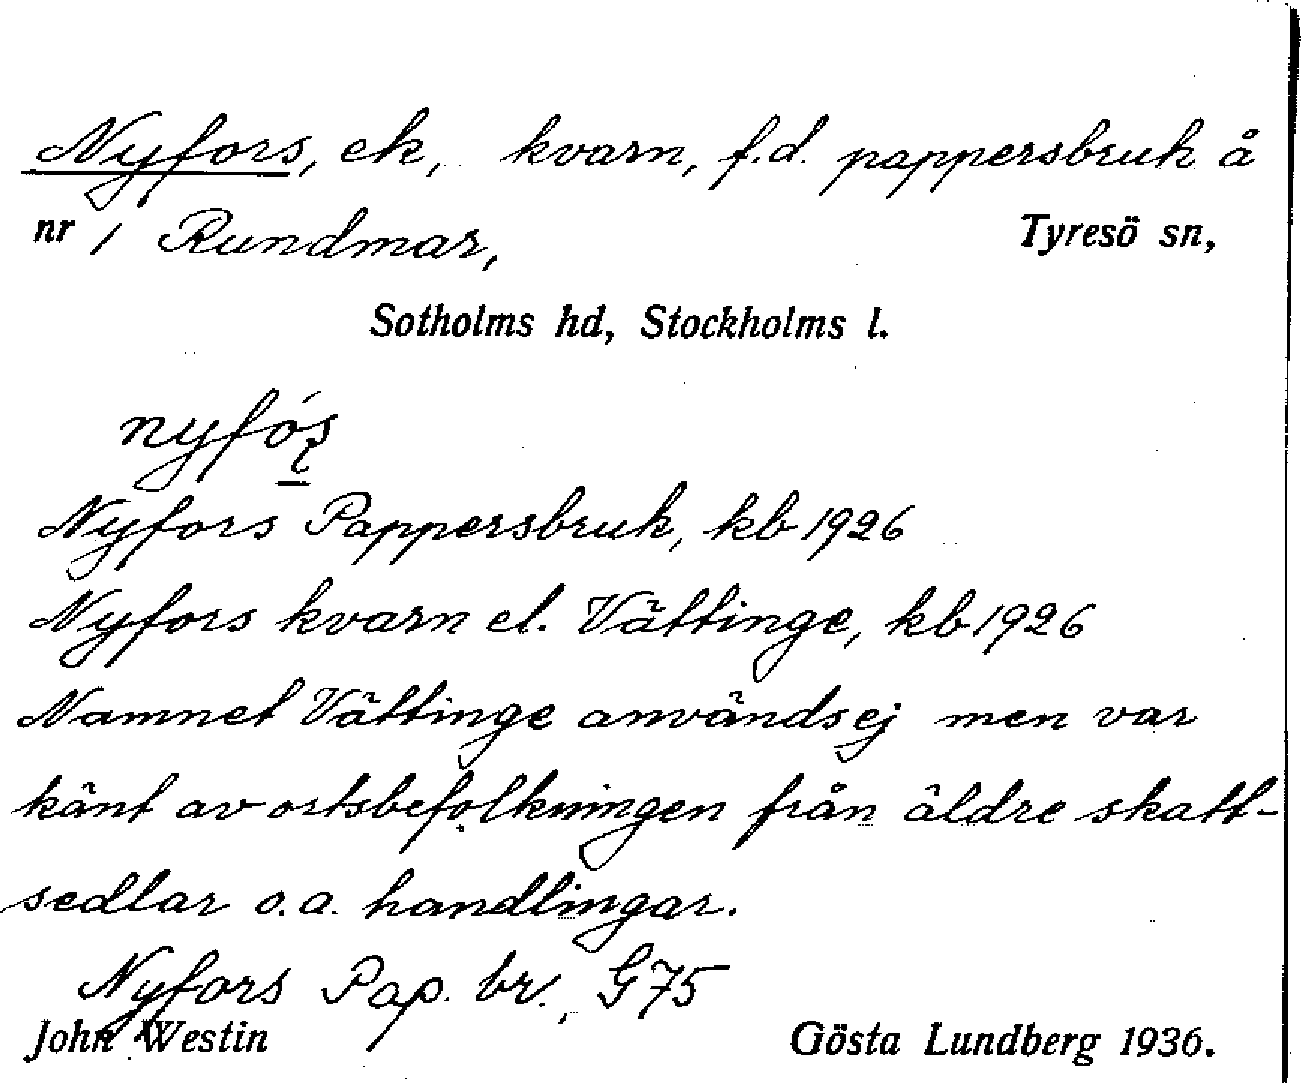 Nyfors, ek, kvarn, f.d. pappersbruk å
nr 1 Rundmar, Tyresö sn,
Sotholms hd, Stockholms l.
Nyfors Pappersbruk, kb 1926
Nyfors kvarn el. Vättinge, kb 1926
Namnet Vättinge användsej men var
känt av ortsbefolkningen från äldre skatt-
sedlar o.a. handlingar.
Nyfors Pap. br., G75
John Westin Gösta Lundberg 1936.